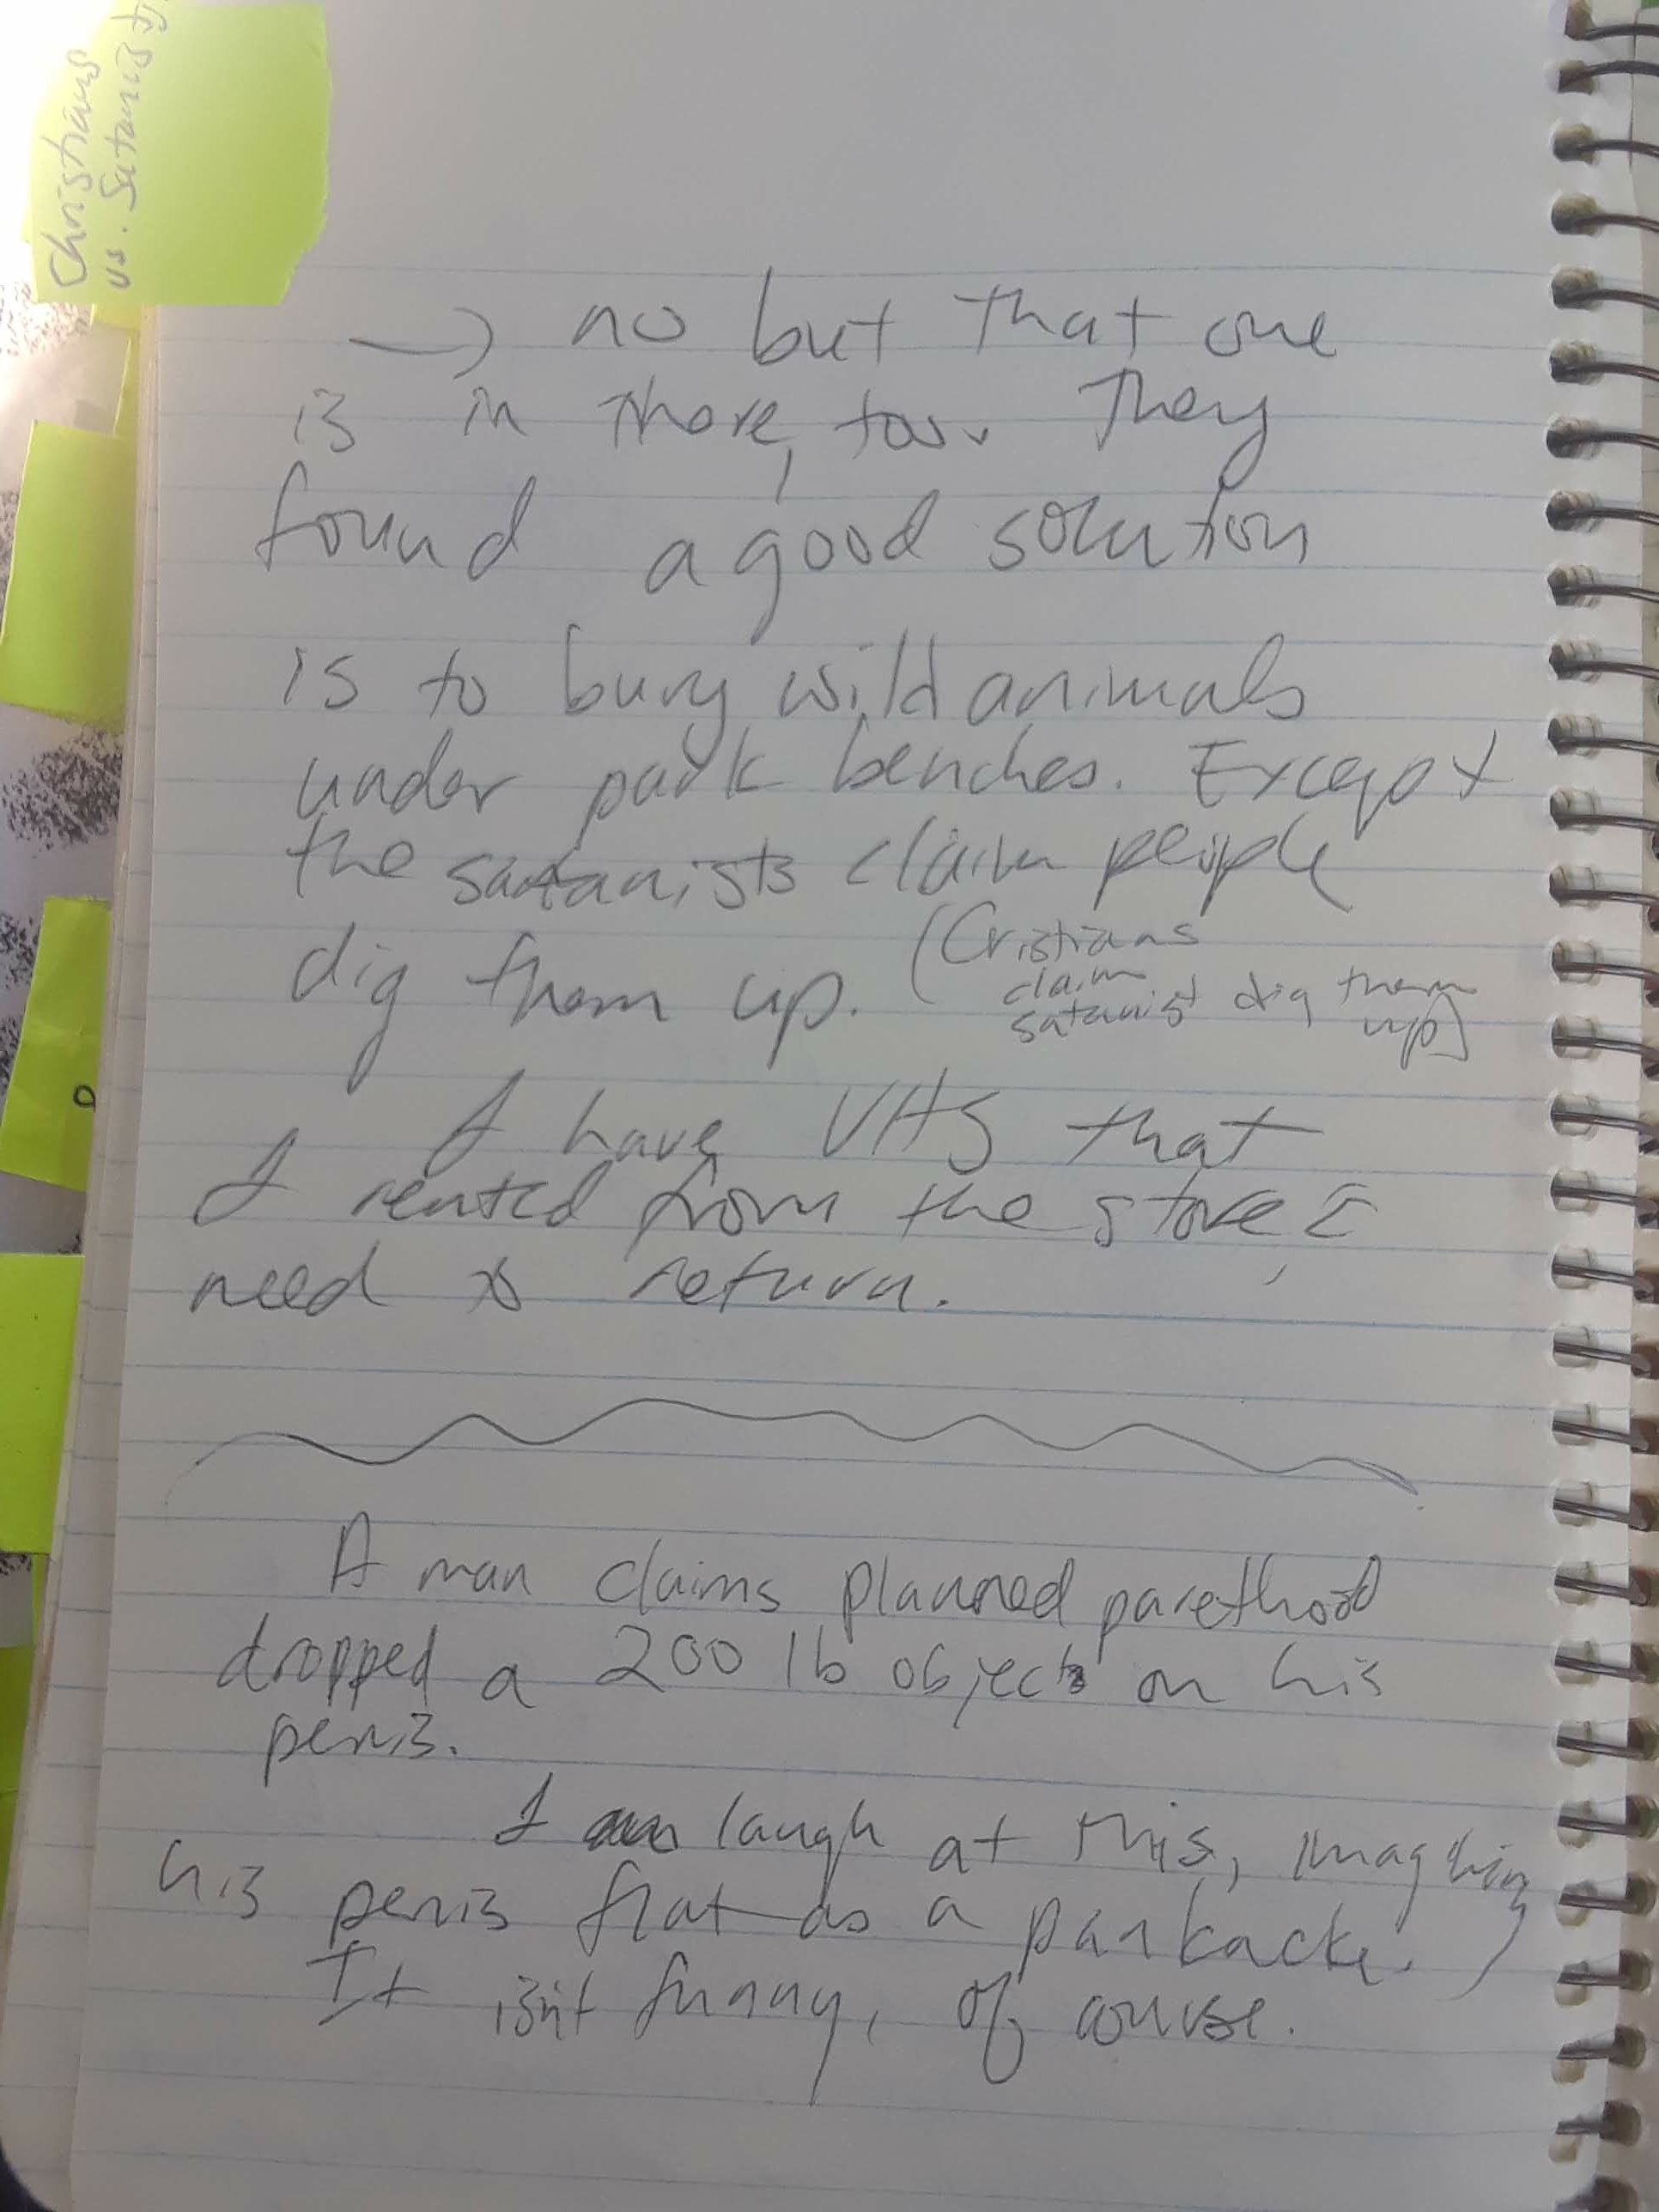 Christians
vs. Satanists
→ no but that one
is in there, too. They
found a good solution
is to bury wild animals
under park benches. Except
the satanists claim people
dig them up. (Cristians
claim
satanist dig them
up)
I have VHS that
I rented from the store, I
need to return.
A man claims planned parethood
dropped a 200 lb object on his
penis.
I laugh at this, imagining
his penis flat as a pankacke.
It isn't funny, of course.